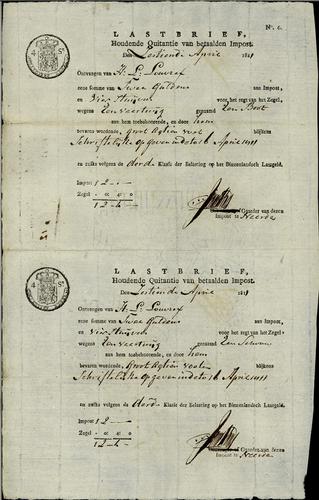 No. 6.
LASTBRIEF,
Houdende Quitantie van betaalden Impost.
Den Zestiende April 1811
Ontvangen van H. L. Louvref
eene somme van Twee Guldens aan Impost,
en Vier Stuivers voor het regt van het Zegel,
wegens Een vaartuig genaamd Een Boot
aan hem toebehoorende, en door hem
bevaren wordende, groot Agtien voet blijkens
Schriftelijke opgeven in dato 16 April 1811
en zulks volgens de derde Klasse der Belasting op het Binnenlandsch Lastgeld.
Impost ƒ 2 - -
Zegel
ƒ 2 - 4 -
Gaarder van deren
Impost te Heerde
LASTBRIEF,
Houdende Quitantie van betaalden Impost.
Den Zestiende April 1811
Ontvangen van H. L. Louvref
eene somme van Twee Guldens aan Impost,
en Vier Stuivers voor het regt van het Zegel,
wegens Een vaartuig genaamd Een
aan hem toebehoorende, en door hem
bevaren wordende, groot Agtien voeten blijkens
Schriftelijke opgeven in dato 16 April 1811
en zulks volgens de derde Klasse der Belasting op het Binnenlandsch Lastgeld.
Impost ƒ 2 -
Zegel
ƒ 2 - 4 -
Gaarder van deren
Impost te Heerde